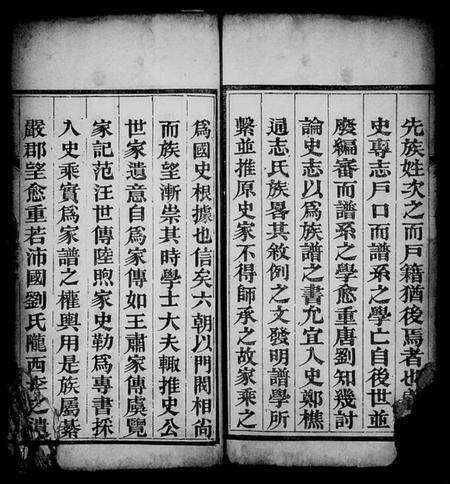 先族姓次之而戶籍猶後焉者也
史專志戶口而譜系之學亡自後世並
廢編審而譜系之學愈重唐劉知幾討
論史志以爲族譜之書允宜入史鄭樵
通志氏族畧其敘例之文發明譜學所
繫並推原史家不得師承之故家乘之
爲國史根據也信矣六朝以門閥相尚
而族望漸崇其時學士大夫輙推史公
世家遺意自爲家傳如王肅家傳虞覽
家記范汪世傳陸煦家史勒爲專書採
入史乘實爲家譜之權輿用是族屬綦
嚴郡望愈重若沛國劉氏隴西李之